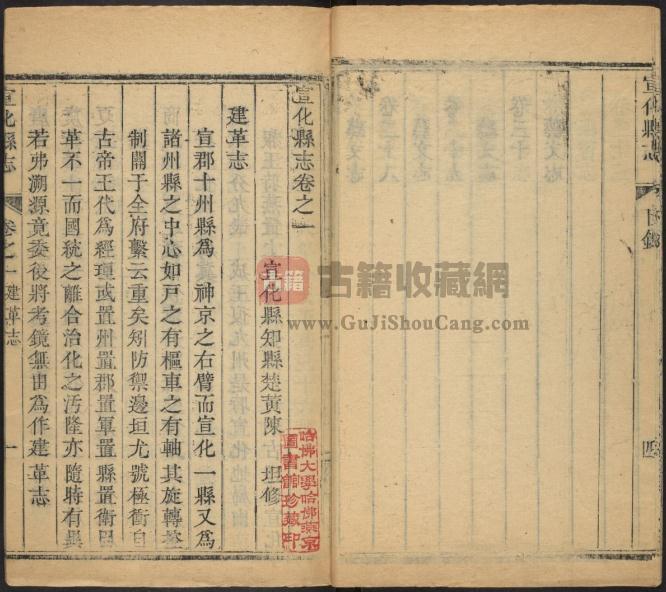 宣化縣志
目錄
四
宣化縣志卷之一
宣化縣知縣楚黃陳 坦修
建革志
宣郡十州縣爲神京之右臂而宣化一縣又爲
諸州縣之中心如戸之有樞車之有軸其旋轉
制闔于全府繫云重矣矧防禦邊垣尤號極衝自
古帝王代爲經理或置州置郡置軍置縣置衛因
革不一而國統之離合治化之汚隆亦隨時有異
若弗溯源竟委後將考鏡無由爲作建革志
宣化縣志
卷之一 建革志
一
哈佛大學哈佛燕京
圖書館珍藏印
古籍
古籍收藏網
www.GuJiShouCang.com